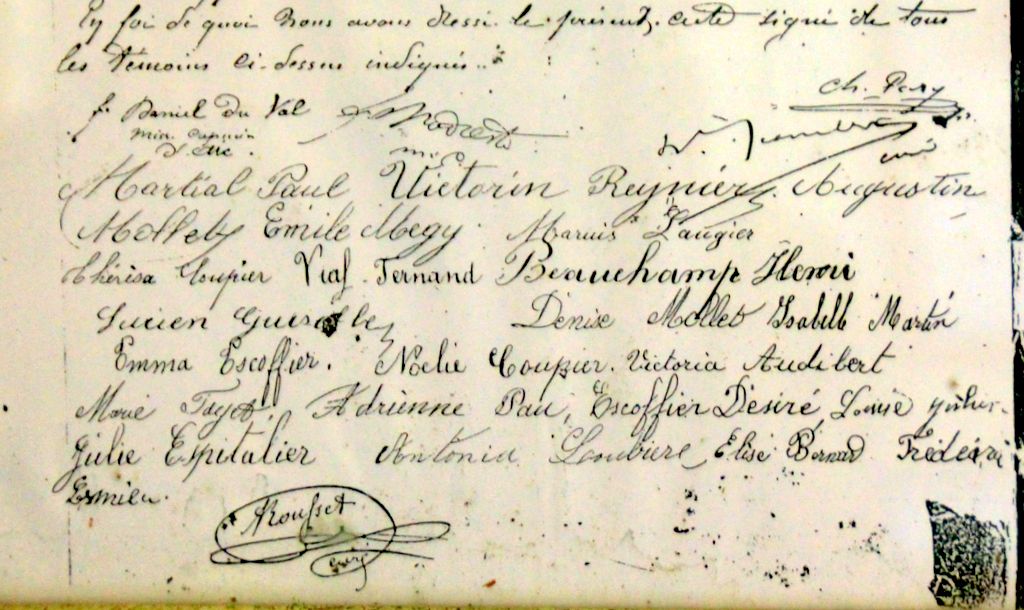 En foi de quoi nous avons dressé le présent acte signé de tous
les témoins ci-dessus indiqués..
Ch. Pory
f. Daniel Du Val
min. capucin
Modeste
Martial Paul Victorin Reynier Augustin
curé
Mollet Emile Megy. Marius Laugier
Thérèsa Coupier Vial Fernand Beauchamp Henri
Lucien
Denise Mollet Isabelle Martin
Emma Escoffier. Noélie Coupier. Victoria Audibert
Marie Adrienne Pau, Escoffier Désiré Louise
Julie Espitalier Antonia Loubière Elise Bernard Frédéric
Esmieu.
Rousset
curé